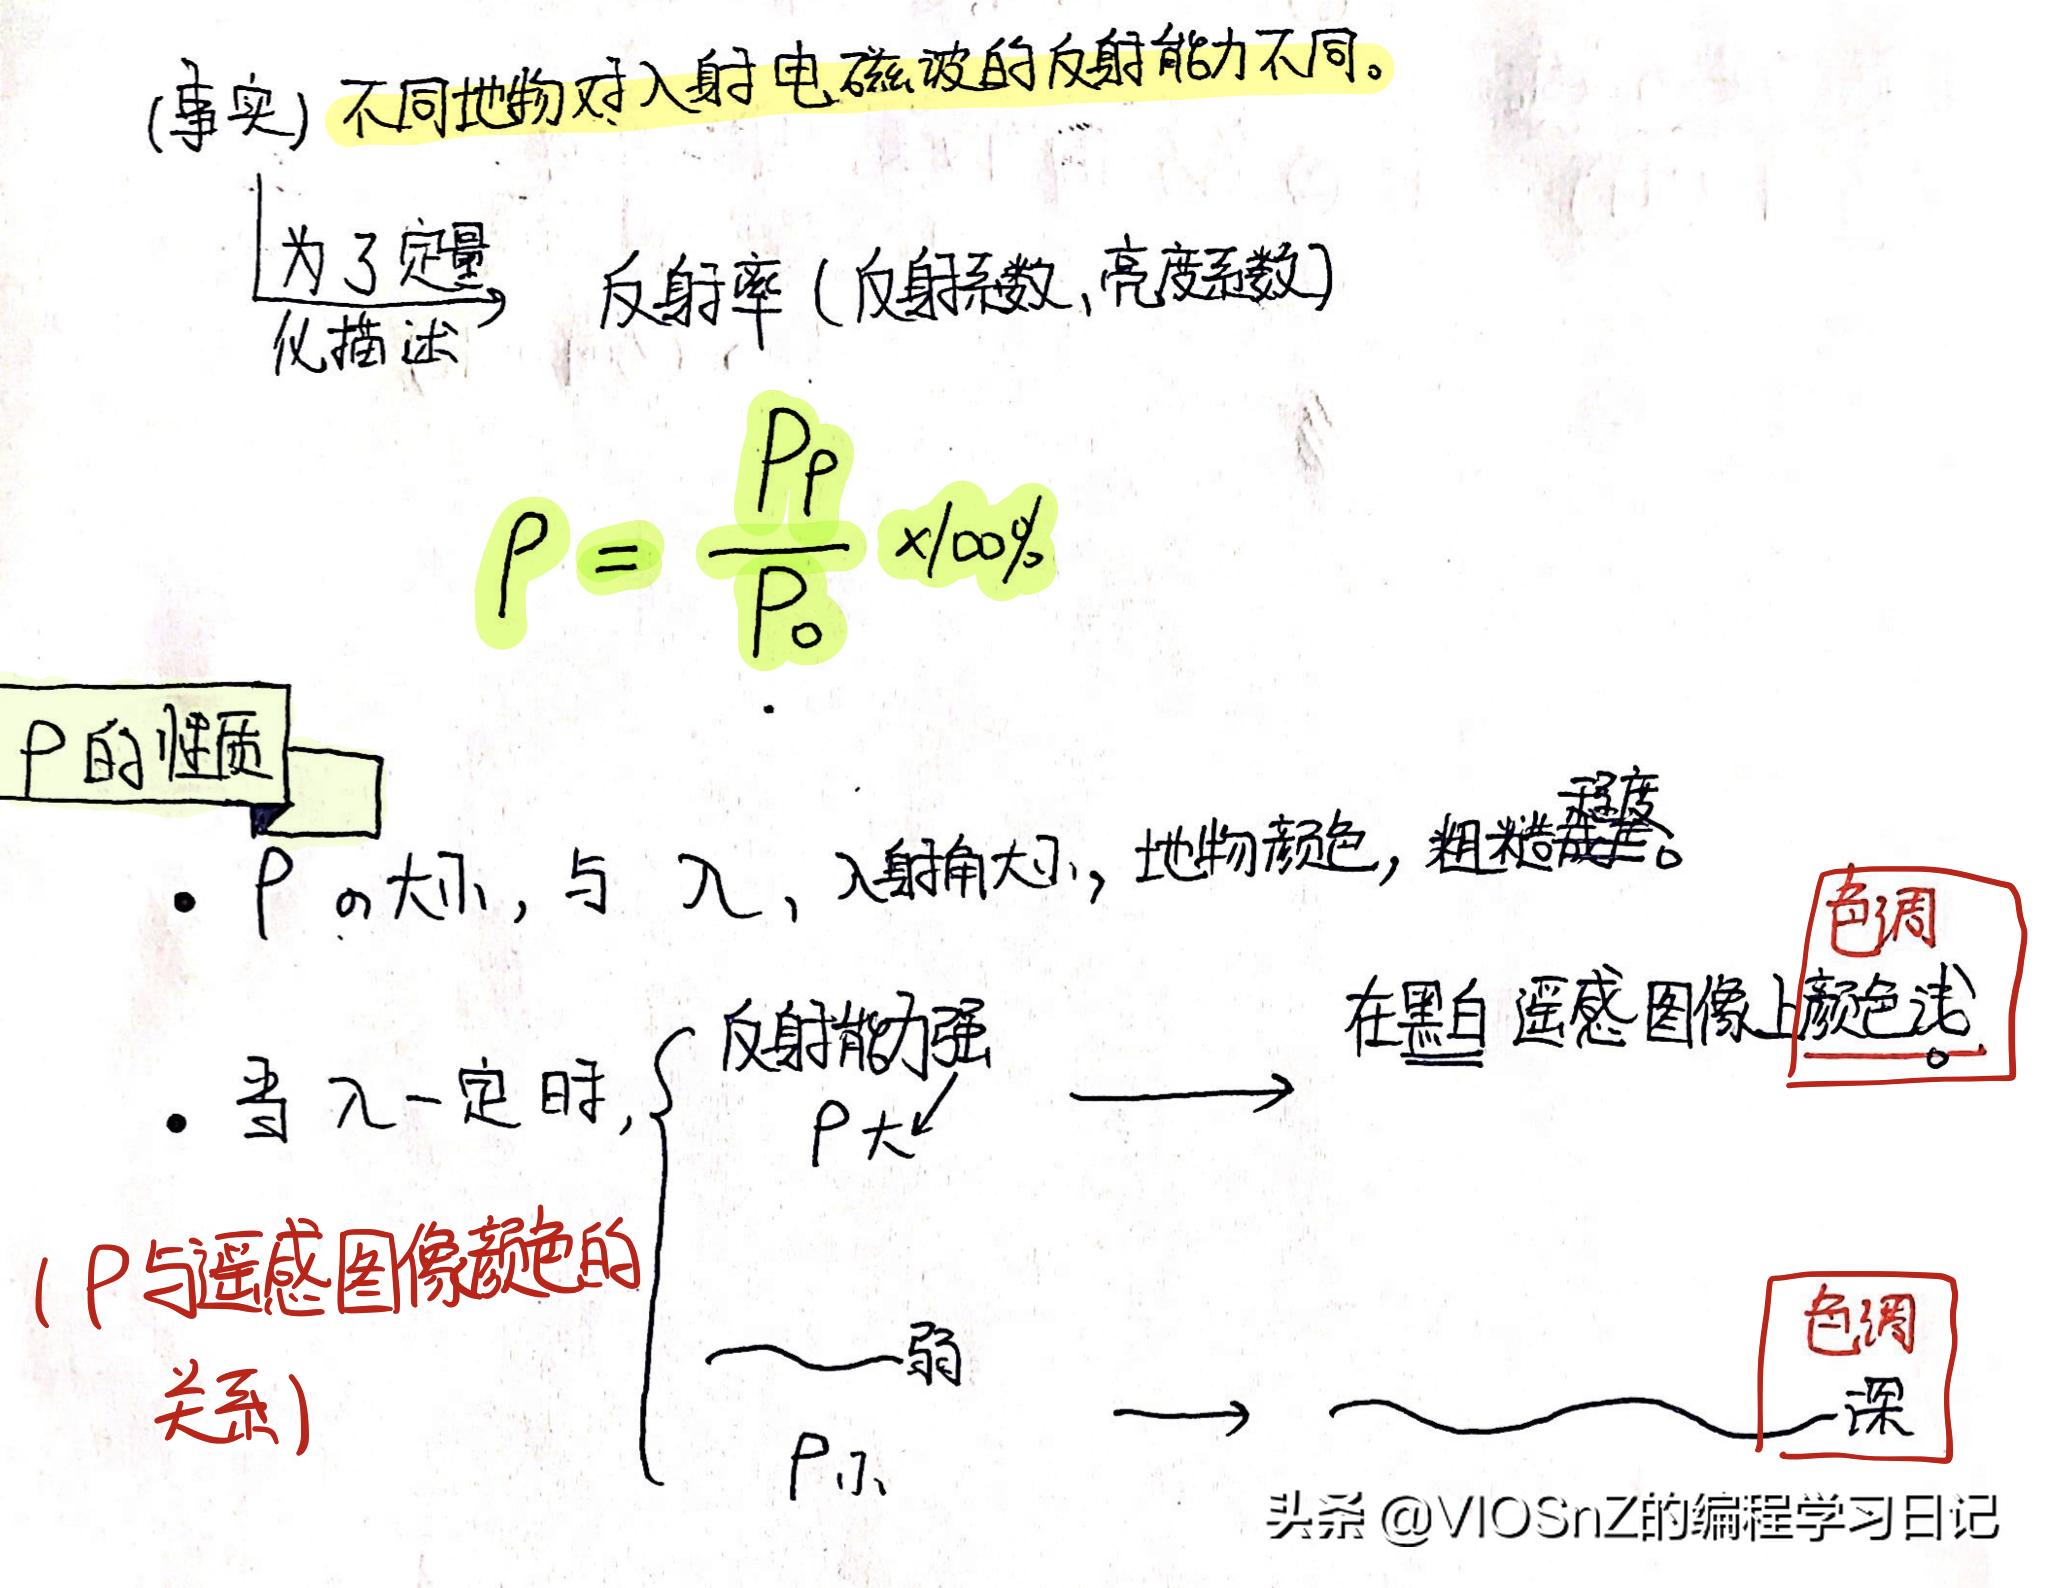 (事实) 不同地物对入射电磁波的反射能力不同。
为了定量
化描述
反射率(反射系数、亮度系数)
ρ = Pρ / P₀ ×100%
ρ的性质
• ρの大小, 与 λ、入射角大小, 地物颜色, 粗糙程度。
色调
• 当λ一定时,
反射能力强
ρ大
在黑白遥感图像上颜色浅。
(ρ与遥感图像颜色的
关系)
弱
ρ小
色调
深
头条 @VIOSnZ的编程学习日记